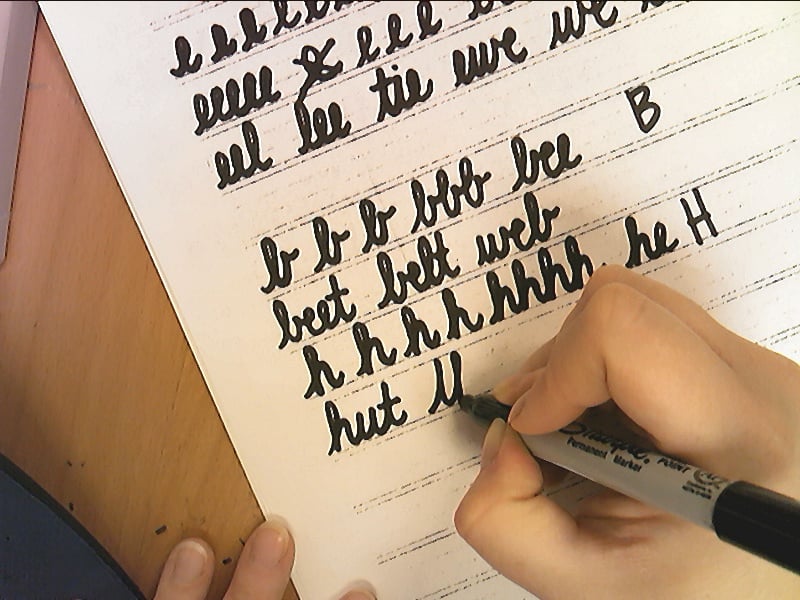 l l l l l
eeeee l l l
eel lee tie ewe we
B
b b b bbb bee
beet belt web
h h h h hhhh he H
hut U
Sharpie.
Permanent Marker